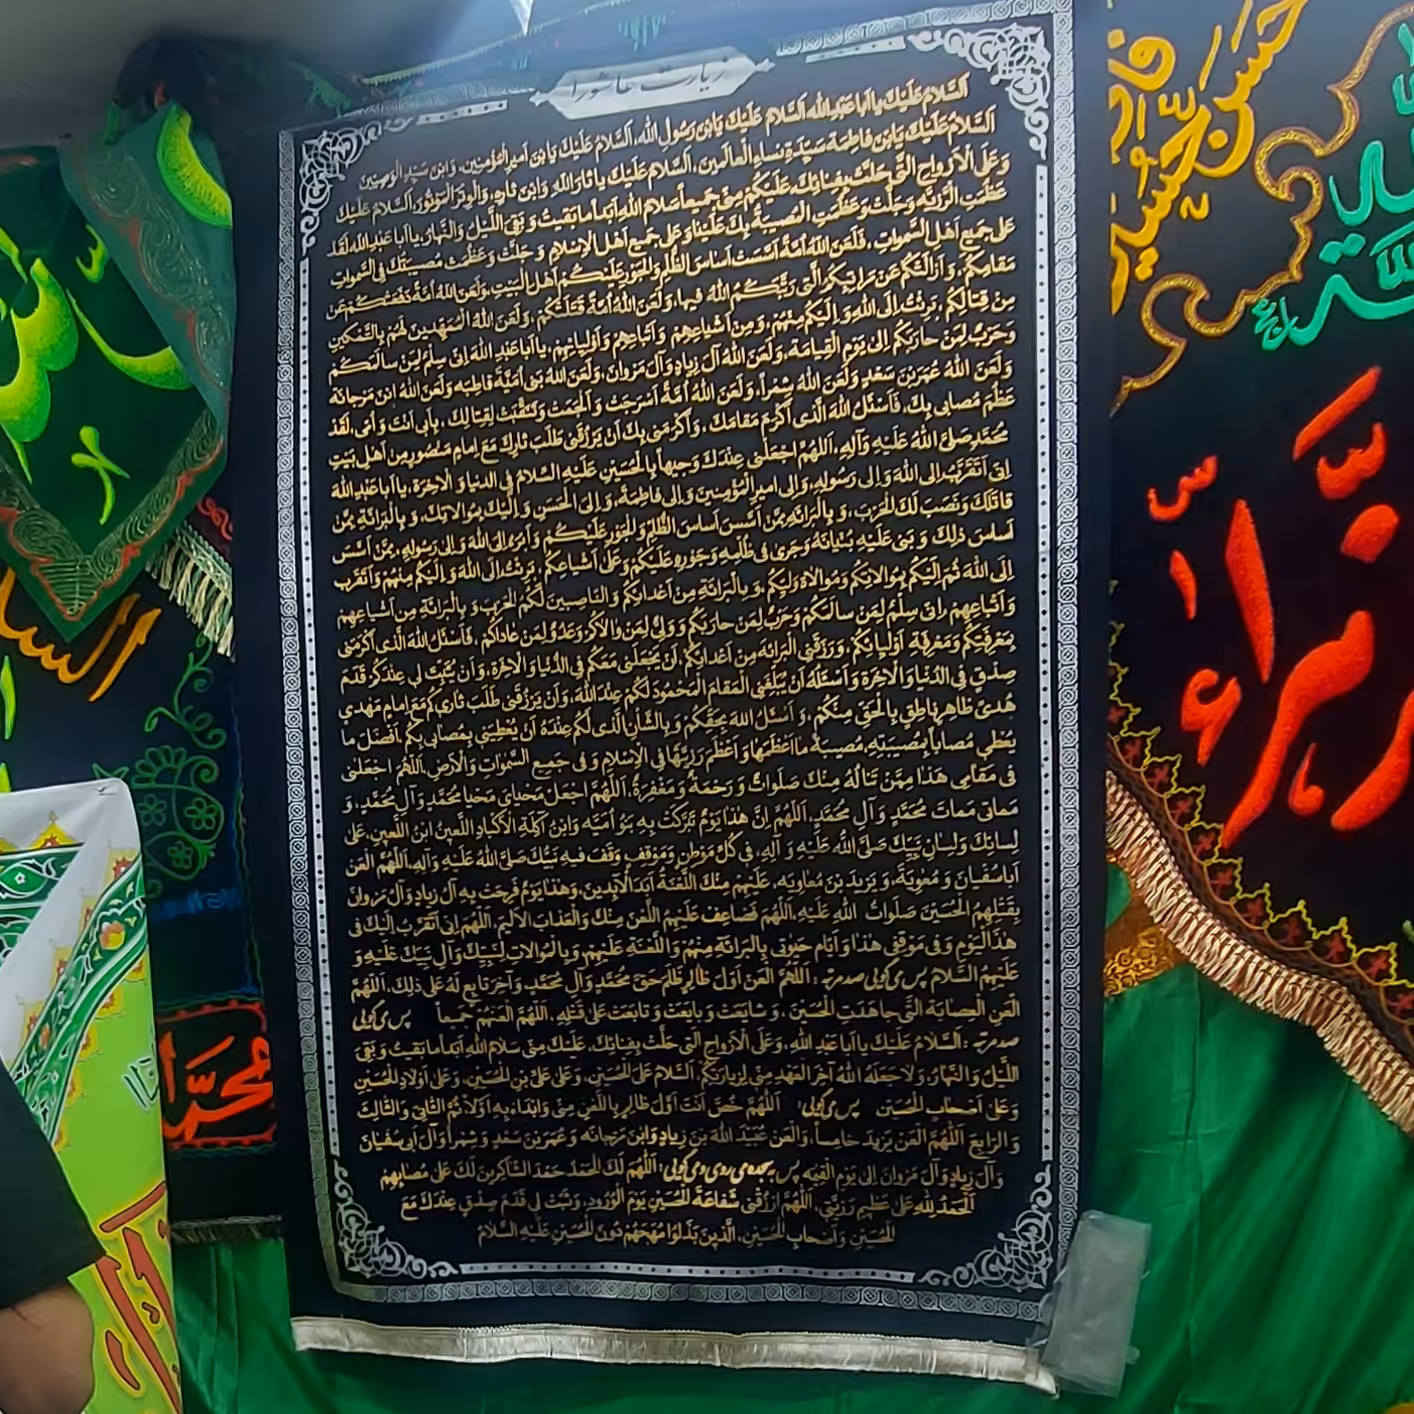 زيارت عاشورا
اَلسَّلامُ عَلَيْكَ يا اَبا عَبْدِ اللهِ اَلسَّلامُ عَلَيْكَ يَابْنَ رَسُولِ اللهِ، اَلسَّلامُ عَلَيْكَ يَابْنَ اَميرِ الْمُؤْمِنينَ، وَابْنَ سَيِّدِ الْوَصِيّينَ
اَلسَّلامُ عَلَيْكَ يَابْنَ فاطِمَةَ سَيِّدَةِ نِساءِ الْعالَمينَ، اَلسَّلامُ عَلَيْكَ يا ثارَ اللهِ وَابْنَ ثارِهِ، وَالْوِتْرَ الْمَوْتُورَ، اَلسَّلامُ عَلَيْكَ
وَعَلَى الْاَرْواحِ الَّتي حَلَّتْ بِفِنائِكَ، عَلَيْكُمْ مِنّي جَميعاً سَلامُ اللهِ اَبَداً ما بَقيتُ وَ بَقِيَ اللَّيْلُ وَالنَّهارُ، يا اَبا عَبْدِ اللهِ لَقَدْ
عَظُمَتِ الرَّزِيَّةُ وَ جَلَّتْ وَ عَظُمَتِ الْمُصيبَةُ بِكَ عَلَيْنا وَ عَلى جَميعِ اَهْلِ الْاِسْلامِ وَ جَلَّتْ وَ عَظُمَتْ مُصيبَتُكَ فِي السَّمواتِ
عَلى جَميعِ اَهْلِ السَّمواتِ، فَلَعَنَ اللهُ اُمَّةً اَسَّسَتْ اَساسَ الظُّلْمِ وَالْجَوْرِ عَلَيْكُمْ اَهْلَ الْبَيْتِ، وَلَعَنَ اللهُ اُمَّةً دَفَعَتْكُمْ عَنْ
مَقامِكُمْ، وَ اَزالَتْكُمْ عَنْ مَراتِبِكُمُ الَّتي رَتَّبَكُمُ اللهُ فيها، وَلَعَنَ اللهُ اُمَّةً قَتَلَتْكُمْ، وَلَعَنَ اللهُ الْمُمَهِّدينَ لَهُمْ بِالتَّمْكينِ
مِنْ قِتالِكُمْ، بَرِئْتُ اِلَى اللهِ وَ اِلَيْكُمْ مِنْهُمْ، وَ مِنْ اَشْياعِهِمْ وَ اَتْباعِهِمْ وَ اَوْلِيائِهِمْ، يا اَبا عَبْدِ اللهِ اِنّي سِلْمٌ لِمَنْ سالَمَكُمْ
وَ حَرْبٌ لِمَنْ حارَبَكُمْ اِلى يَوْمِ الْقِيامَةِ، وَلَعَنَ اللهُ آلَ زِيادٍ وَ آلَ مَرْوانَ، وَلَعَنَ اللهُ بَني اُمَيَّةَ قاطِبَةً وَلَعَنَ اللهُ ابْنَ مَرْجانَةَ
وَلَعَنَ اللهُ عُمَرَ بْنَ سَعْدٍ وَلَعَنَ اللهُ شِمْراً، وَلَعَنَ اللهُ اُمَّةً اَسْرَجَتْ وَ اَلْجَمَتْ وَ تَنَقَّبَتْ لِقِتالِكَ، بِاَبي اَنْتَ وَ اُمّي، لَقَدْ
عَظُمَ مُصابي بِكَ، فَاَسْئَلُ اللهَ الَّذي اَكْرَمَ مَقامَكَ، وَ اَكْرَمَني بِكَ اَنْ يَرْزُقَني طَلَبَ ثارِكَ مَعَ اِمامٍ مَنْصُورٍ مِنْ اَهْلِ بَيْتِ
مُحَمَّدٍ صَلَّى اللهُ عَلَيْهِ وَ آلِهِ، اَللّهُمَّ اجْعَلْني عِنْدَكَ وَجيهاً بِالْحُسَيْنِ عَلَيْهِ السَّلامُ فِي الدُّنْيا وَ الْاخِرَةِ، يا اَبا عَبْدِ اللهِ
اِنّي اَتَقَرَّبُ اِلَى اللهِ وَ اِلى رَسُولِهِ، وَ اِلى اَميرِ الْمُؤْمِنينَ وَ اِلى فاطِمَةَ، وَ اِلَى الْحَسَنِ وَ اِلَيْكَ بِمُوالاتِكَ، وَ بِالْبَرائَةِ مِمَّنْ
قاتَلَكَ وَ نَصَبَ لَكَ الْحَرْبَ، وَ بِالْبَرائَةِ مِمَّنْ اَسَّسَ اَساسَ الظُّلْمِ وَالْجَوْرِ عَلَيْكُمْ وَ اَبْرَءُ اِلَى اللهِ وَ اِلى رَسُولِهِ، مِمَّنْ اَسَّسَ
اَساسَ ذلِكَ وَ بَنى عَلَيْهِ بُنْيانَهُ وَ جَرى في ظُلْمِهِ وَ جَوْرِهِ عَلَيْكُمْ وَ عَلى اَشْياعِكُمْ، بَرِئْتُ اِلَى اللهِ وَ اِلَيْكُمْ مِنْهُمْ وَ اَتَقَرَّبُ
اِلَى اللهِ ثُمَّ اِلَيْكُمْ بِمُوالاتِكُمْ وَ مُوالاةِ وَلِيِّكُمْ، وَ بِالْبَرائَةِ مِنْ اَعْدائِكُمْ وَ النّاصِبينَ لَكُمُ الْحَرْبَ وَ بِالْبَرائَةِ مِنْ اَشْياعِهِمْ
وَ اَتْباعِهِمْ، اِنّي سِلْمٌ لِمَنْ سالَمَكُمْ وَ حَرْبٌ لِمَنْ حارَبَكُمْ وَ وَلِيٌّ لِمَنْ والاكُمْ وَ عَدُوٌّ لِمَنْ عاداكُمْ، فَاَسْئَلُ اللهَ الَّذي اَكْرَمَني
بِمَعْرِفَتِكُمْ وَ مَعْرِفَةِ اَوْلِيائِكُمْ، وَ رَزَقَنِي الْبَرائَةَ مِنْ اَعْدائِكُمْ، اَنْ يَجْعَلَني مَعَكُمْ فِي الدُّنْيا وَ الْاخِرَةِ، وَ اَنْ يُثَبِّتَ لي عِنْدَكُمْ قَدَمَ
صِدْقٍ فِي الدُّنْيا وَ الْاخِرَةِ وَ اَسْئَلُهُ اَنْ يُبَلِّغَنِي الْمَقامَ الْمَحْمُودَ لَكُمْ عِنْدَ اللهِ، وَ اَنْ يَرْزُقَني طَلَبَ ثارِكُمْ مَعَ اِمامٍ مَهْدِيٍّ
هُدىً ظاهِرٍ ناطِقٍ بِالْحَقِّ مِنْكُمْ، وَ اَسْئَلُ اللهَ بِحَقِّكُمْ وَ بِالشَّاْنِ الَّذي لَكُمْ عِنْدَهُ اَنْ يُعْطِيَني بِمُصابي بِكُمْ اَفْضَلَ ما
يُعْطي مُصاباً بِمُصيبَتِهِ، مُصيبَةً ما اَعْظَمَها وَ اَعْظَمَ رَزِيَّتَها فِي الْاِسْلامِ وَ في جَميعِ السَّمواتِ وَالْاَرْضِ، اَللّهُمَّ اجْعَلْني
في مَقامي هذا مِمَّنْ تَنالُهُ مِنْكَ صَلَواتٌ وَ رَحْمَةٌ وَ مَغْفِرَةٌ، اَللّهُمَّ اجْعَلْ مَحْيايَ مَحْيا مُحَمَّدٍ وَ آلِ مُحَمَّدٍ، وَ
مَماتي مَماتَ مُحَمَّدٍ وَ آلِ مُحَمَّدٍ، اَللّهُمَّ اِنَّ هذا يَوْمٌ تَبَرَّكَتْ بِهِ بَنُو اُمَيَّةَ وَ ابْنُ آكِلَةِ الْاَكْبادِ اللَّعينُ ابْنُ اللَّعينِ، عَلى
لِسانِكَ وَ لِسانِ نَبِيِّكَ صَلَّى اللهُ عَلَيْهِ وَ آلِهِ، في كُلِّ مَوْطِنٍ وَ مَوْقِفٍ وَقَفَ فيهِ نَبِيُّكَ صَلَّى اللهُ عَلَيْهِ وَ آلِهِ، اَللّهُمَّ الْعَنْ
اَبا سُفْيانَ وَ مُعوِيَةَ، وَ يَزيدَ بْنَ مُعاوِيَةَ، عَلَيْهِمْ مِنْكَ اللَّعْنَةُ اَبَدَ الْابِدينَ، وَ هذا يَوْمٌ فَرِحَتْ بِهِ آلُ زِيادٍ وَ آلُ مَرْوانَ
بِقَتْلِهِمُ الْحُسَيْنَ صَلَواتُ اللهِ عَلَيْهِ، اَللّهُمَّ فَضاعِفْ عَلَيْهِمُ اللَّعْنَ مِنْكَ وَ الْعَذابَ الْاَليمَ، اَللّهُمَّ اِنّي اَتَقَرَّبُ اِلَيْكَ في
هذَا الْيَوْمِ وَ في مَوْقِفي هذا وَ اَيّامِ حَيوتي بِالْبَرائَةِ مِنْهُمْ وَ اللَّعْنَةِ عَلَيْهِمْ، وَ بِالْمُوالاتِ لِنَبِيِّكَ وَ آلِ نَبِيِّكَ عَلَيْهِ وَ
عَلَيْهِمُ السَّلامُ پس می‌گوئی صد مرتبه: اَللّهُمَّ الْعَنْ اَوَّلَ ظالِمٍ ظَلَمَ حَقَّ مُحَمَّدٍ وَ آلِ مُحَمَّدٍ، وَ آخِرَ تابِعٍ لَهُ عَلى ذلِكَ، اَللّهُمَّ
الْعَنِ الْعِصابَةَ الَّتي جاهَدَتِ الْحُسَيْنَ، وَ شايَعَتْ وَ بايَعَتْ وَ تابَعَتْ عَلى قَتْلِهِ، اَللّهُمَّ الْعَنْهُمْ جَميعاً پس می‌گوئی
صد مرتبه: اَلسَّلامُ عَلَيْكَ يا اَبا عَبْدِ اللهِ، وَعَلَى الْاَرْواحِ الَّتي حَلَّتْ بِفِنائِكَ، عَلَيْكَ مِنّي سَلامُ اللهِ اَبَداً ما بَقيتُ وَ بَقِيَ
اللَّيْلُ وَ النَّهارُ، وَلا جَعَلَهُ اللهُ آخِرَ الْعَهْدِ مِنّي لِزِيارَتِكُمْ، اَلسَّلامُ عَلَى الْحُسَيْنِ، وَ عَلى عَلِيِّ بْنِ الْحُسَيْنِ، وَ عَلى اَوْلادِ الْحُسَيْنِ
وَ عَلى اَصْحابِ الْحُسَيْنِ پس می‌گوئی: اَللّهُمَّ خُصَّ اَنْتَ اَوَّلَ ظالِمٍ بِاللَّعْنِ مِنّي وَ ابْدَاْ بِهِ اَوَّلاً ثُمَّ الثّانِيَ وَ الثّالِثَ
وَ الرّابِعَ اَللّهُمَّ الْعَنْ يَزيدَ خامِساً، وَ الْعَنْ عُبَيْدَ اللهِ بْنَ زِيادٍ وَ ابْنَ مَرْجانَةَ وَ عُمَرَ بْنَ سَعْدٍ وَ شِمْراً وَ آلَ اَبي سُفْيانَ
وَ آلَ زِيادٍ وَ آلَ مَرْوانَ اِلى يَوْمِ الْقِيمَةِ پس به سجده می‌روی و می‌گوئی: اَللّهُمَّ لَكَ الْحَمْدُ حَمْدَ الشّاكِرينَ لَكَ عَلى مُصابِهِمْ
اَلْحَمْدُ لِلّهِ عَلى عَظيمِ رَزِيَّتي، اَللّهُمَّ ارْزُقْني شَفاعَةَ الْحُسَيْنِ يَوْمَ الْوُرُودِ، وَ ثَبِّتْ لي قَدَمَ صِدْقٍ عِنْدَكَ مَعَ
الْحُسَيْنِ وَ اَصْحابِ الْحُسَيْنِ، الَّذينَ بَذَلُوا مُهَجَهُمْ دُونَ الْحُسَيْنِ عَلَيْهِ السَّلامُ
حسن
حسین
زهراء
السلا
محمد